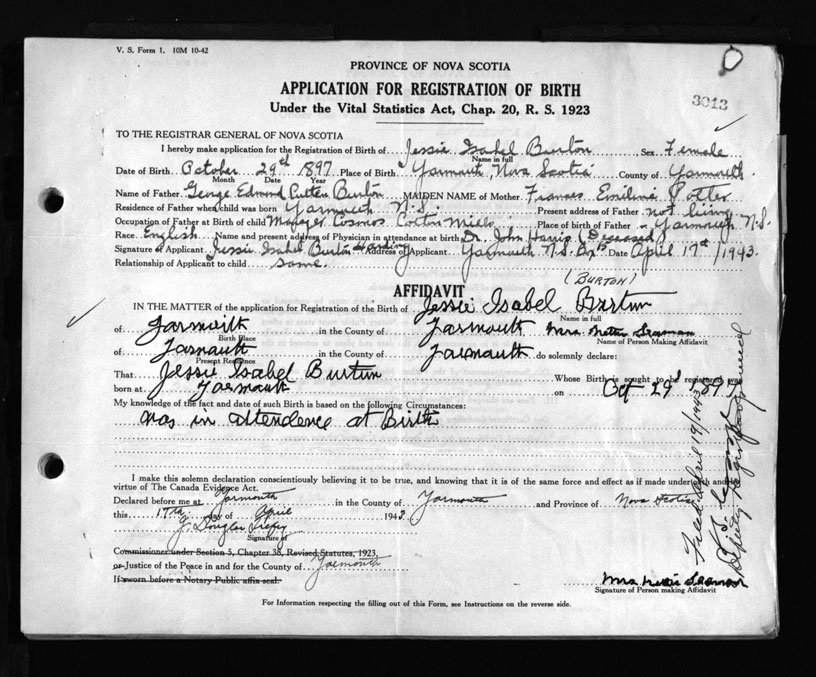 V. S. Form 1. 10M 10-42
PROVINCE OF NOVA SCOTIA
APPLICATION FOR REGISTRATION OF BIRTH
Under the Vital Statistics Act, Chap. 20, R. S. 1923
3013
TO THE REGISTRAR GENERAL OF NOVA SCOTIA
I hereby make application for the Registration of Birth of Jessie Isabel Burton Sex Female
Name in full
Date of Birth October 29th 1897 Place of Birth Yarmouth, Nova Scotia County of Yarmouth
Month Date Year
Name of Father George Edmond Burton MAIDEN NAME of Mother Frances Potter
Residence of Father when child was born Yarmouth N.S. Present address of Father not living
Occupation of Father at Birth of child Manager Cosmos Cotton Mills Place of birth of Father Yarmouth N.S.
Race English Name and present address of Physician in attendance at birth Dr. John Harris (Deceased)
Signature of Applicant Jessie Isabel Burton Harding Address of Applicant Yarmouth N.S. Date April 17th/1943.
Relationship of Applicant to child same.
AFFIDAVIT
(BURTON)
IN THE MATTER of the application for Registration of the Birth of Jessie Isabel Burton
Name in full
of Yarmouth in the County of Yarmouth Mrs. Seaman
Birth Place Name of Person Making Affidavit
of Yarmouth in the County of Yarmouth do solemnly declare:
Present Residence
That Jessie Isabel Burton Whose Birth is sought to be registered was
born at Yarmouth on Oct 29th 1897
My knowledge of the fact and date of such Birth is based on the following Circumstances:
Was in attendence at Birth
I make this solemn declaration conscientiously believing it to be true, and knowing that it is of the same force and effect as if made under oath and by
virtue of The Canada Evidence Act.
Declared before me at Yarmouth in the County of Yarmouth and Province of Nova Scotia
this 17th day of April 1943
J. Douglas
Signature of
Commissioner under Section 5, Chapter 38, Revised Statutes, 1923,
or Justice of the Peace in and for the County of Yarmouth
If sworn before a Notary Public affix seal.
Mrs Seaman
Signature of Person making Affidavit
For Information respecting the filling out of this Form, see Instructions on the reverse side.
Filed April 19/1943
Deputy Registrar General